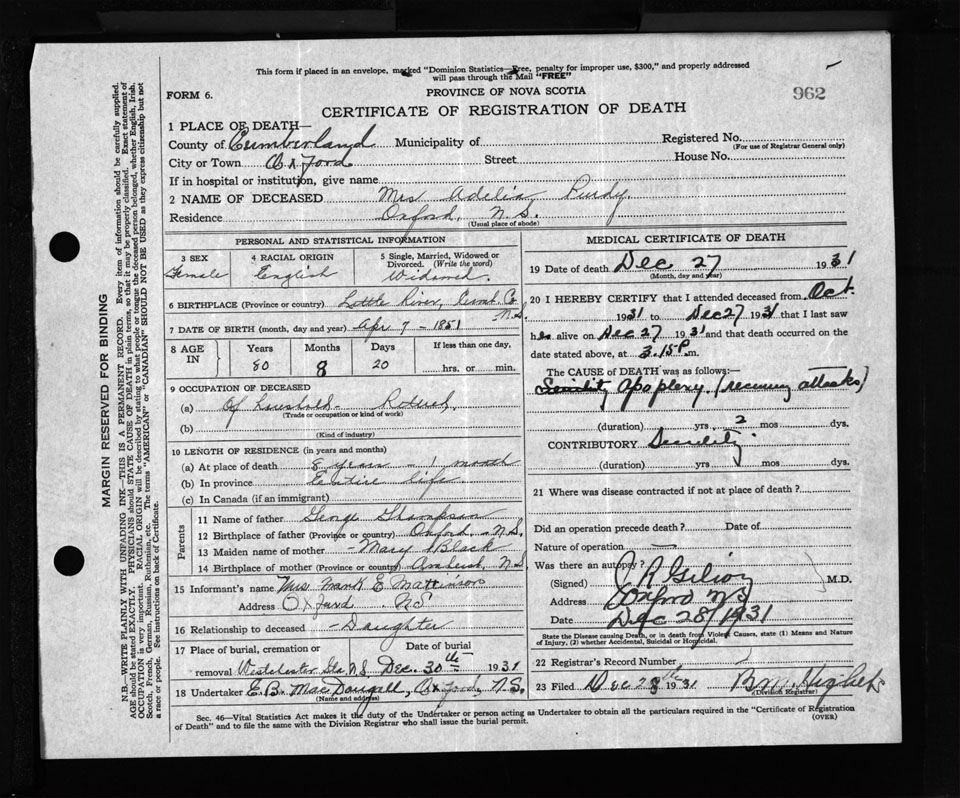 This form if placed in an envelope, marked "Dominion Statistics—Free, penalty for improper use, $300," and properly addressed
will pass through the Mail "FREE"
FORM 6.
PROVINCE OF NOVA SCOTIA
962
CERTIFICATE OF REGISTRATION OF DEATH
1 PLACE OF DEATH—
County of Cumberland Municipality of Registered No.
(For use of Registrar General only)
City or Town Oxford Street House No.
If in hospital or institution, give name
2 NAME OF DECEASED Mrs Adelia Purdy.
Residence Oxford, N.S.
(Usual place of abode)
PERSONAL AND STATISTICAL INFORMATION
3 SEX Female
4 RACIAL ORIGIN English
5 Single, Married, Widowed or Divorced. (Write the word) Widowed.
6 BIRTHPLACE (Province or country) Little River, Cumb. Co. N.S.
7 DATE OF BIRTH (month, day and year) Apr 7 - 1851
8 AGE IN Years Months Days If less than one day,
80 8 20 hrs. or min.
9 OCCUPATION OF DECEASED
(a) Of household - Retired
(Trade or occupation or kind of work)
(b)
(Kind of industry)
10 LENGTH OF RESIDENCE (in years and months)
(a) At place of death 8 years - 1 month
(b) In province Entire life
(c) In Canada (if an immigrant)
Parents
11 Name of father George Thompson
12 Birthplace of father (Province or country) Oxford, N.S.
13 Maiden name of mother - Mary Black
14 Birthplace of mother (Province or country) Amherst, N.S
15 Informant's name Mrs Frank E Mattinson
Address Oxford NS
16 Relationship to deceased - Daughter
17 Place of burial, cremation or removal Date of burial
Westchester Sta N.S. Dec. 30th 1931
18 Undertaker E.B. MacDougall, Oxford, N.S.
(Name and address)
MEDICAL CERTIFICATE OF DEATH
19 Date of death Dec 27 1931
(Month, day and year)
20 I HEREBY CERTIFY that I attended deceased from Oct.
1931 to Dec 27 1931 that I last saw
her alive on Dec 27 1931 and that death occurred on
date stated above, at 3.15 P m.
The CAUSE of DEATH was as follows:
Senility Apoplexy (recurring attacks)
(duration) yrs 2 mos dys.
CONTRIBUTORY Senility
(duration) yrs mos dys.
21 Where was disease contracted if not at place of death?
Did an operation precede death? Date of
Nature of operation
Was there an autopsy?
(Signed) M.D.
Address Oxford NS
Date Dec 28/1931
State the Disease causing Death, or in death from Violent Causes, state (1) Means and Nature
of Injury, (2) whether Accidental, Suicidal or Homicidal.
22 Registrar's Record Number
23 Filed Dec 28th 1931 Hughes
(Division Registrar)
Sec. 46—Vital Statistics Act makes it the duty of the Undertaker or person acting as Undertaker to obtain all the particulars required in the "Certificate of Registration
of Death" and to file the same with the Division Registrar who shall issue the burial permit. (OVER)
MARGIN RESERVED FOR BINDING
N.B.—WRITE PLAINLY WITH UNFADING INK—THIS IS A PERMANENT RECORD. Every item of information should be carefully supplied.
AGE should be stated EXACTLY. PHYSICIANS should STATE CAUSE OF DEATH in plain terms, so that it may be properly classified. Exact statement of
OCCUPATION is very important. RACIAL ORIGIN will be described by stating to what people or tongue the deceased person belonged, whether English, Irish,
Scotch, French, German, Russian, Ruthenian, etc. The terms "AMERICAN" or "CANADIAN" SHOULD NOT BE USED as they express citizenship but not
a race or people. See instructions on back of Certificate.